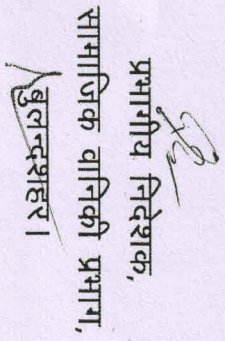 प्रभागीय निदेशक,
सामाजिक वानिकी प्रभाग,
बुलन्दशहर।